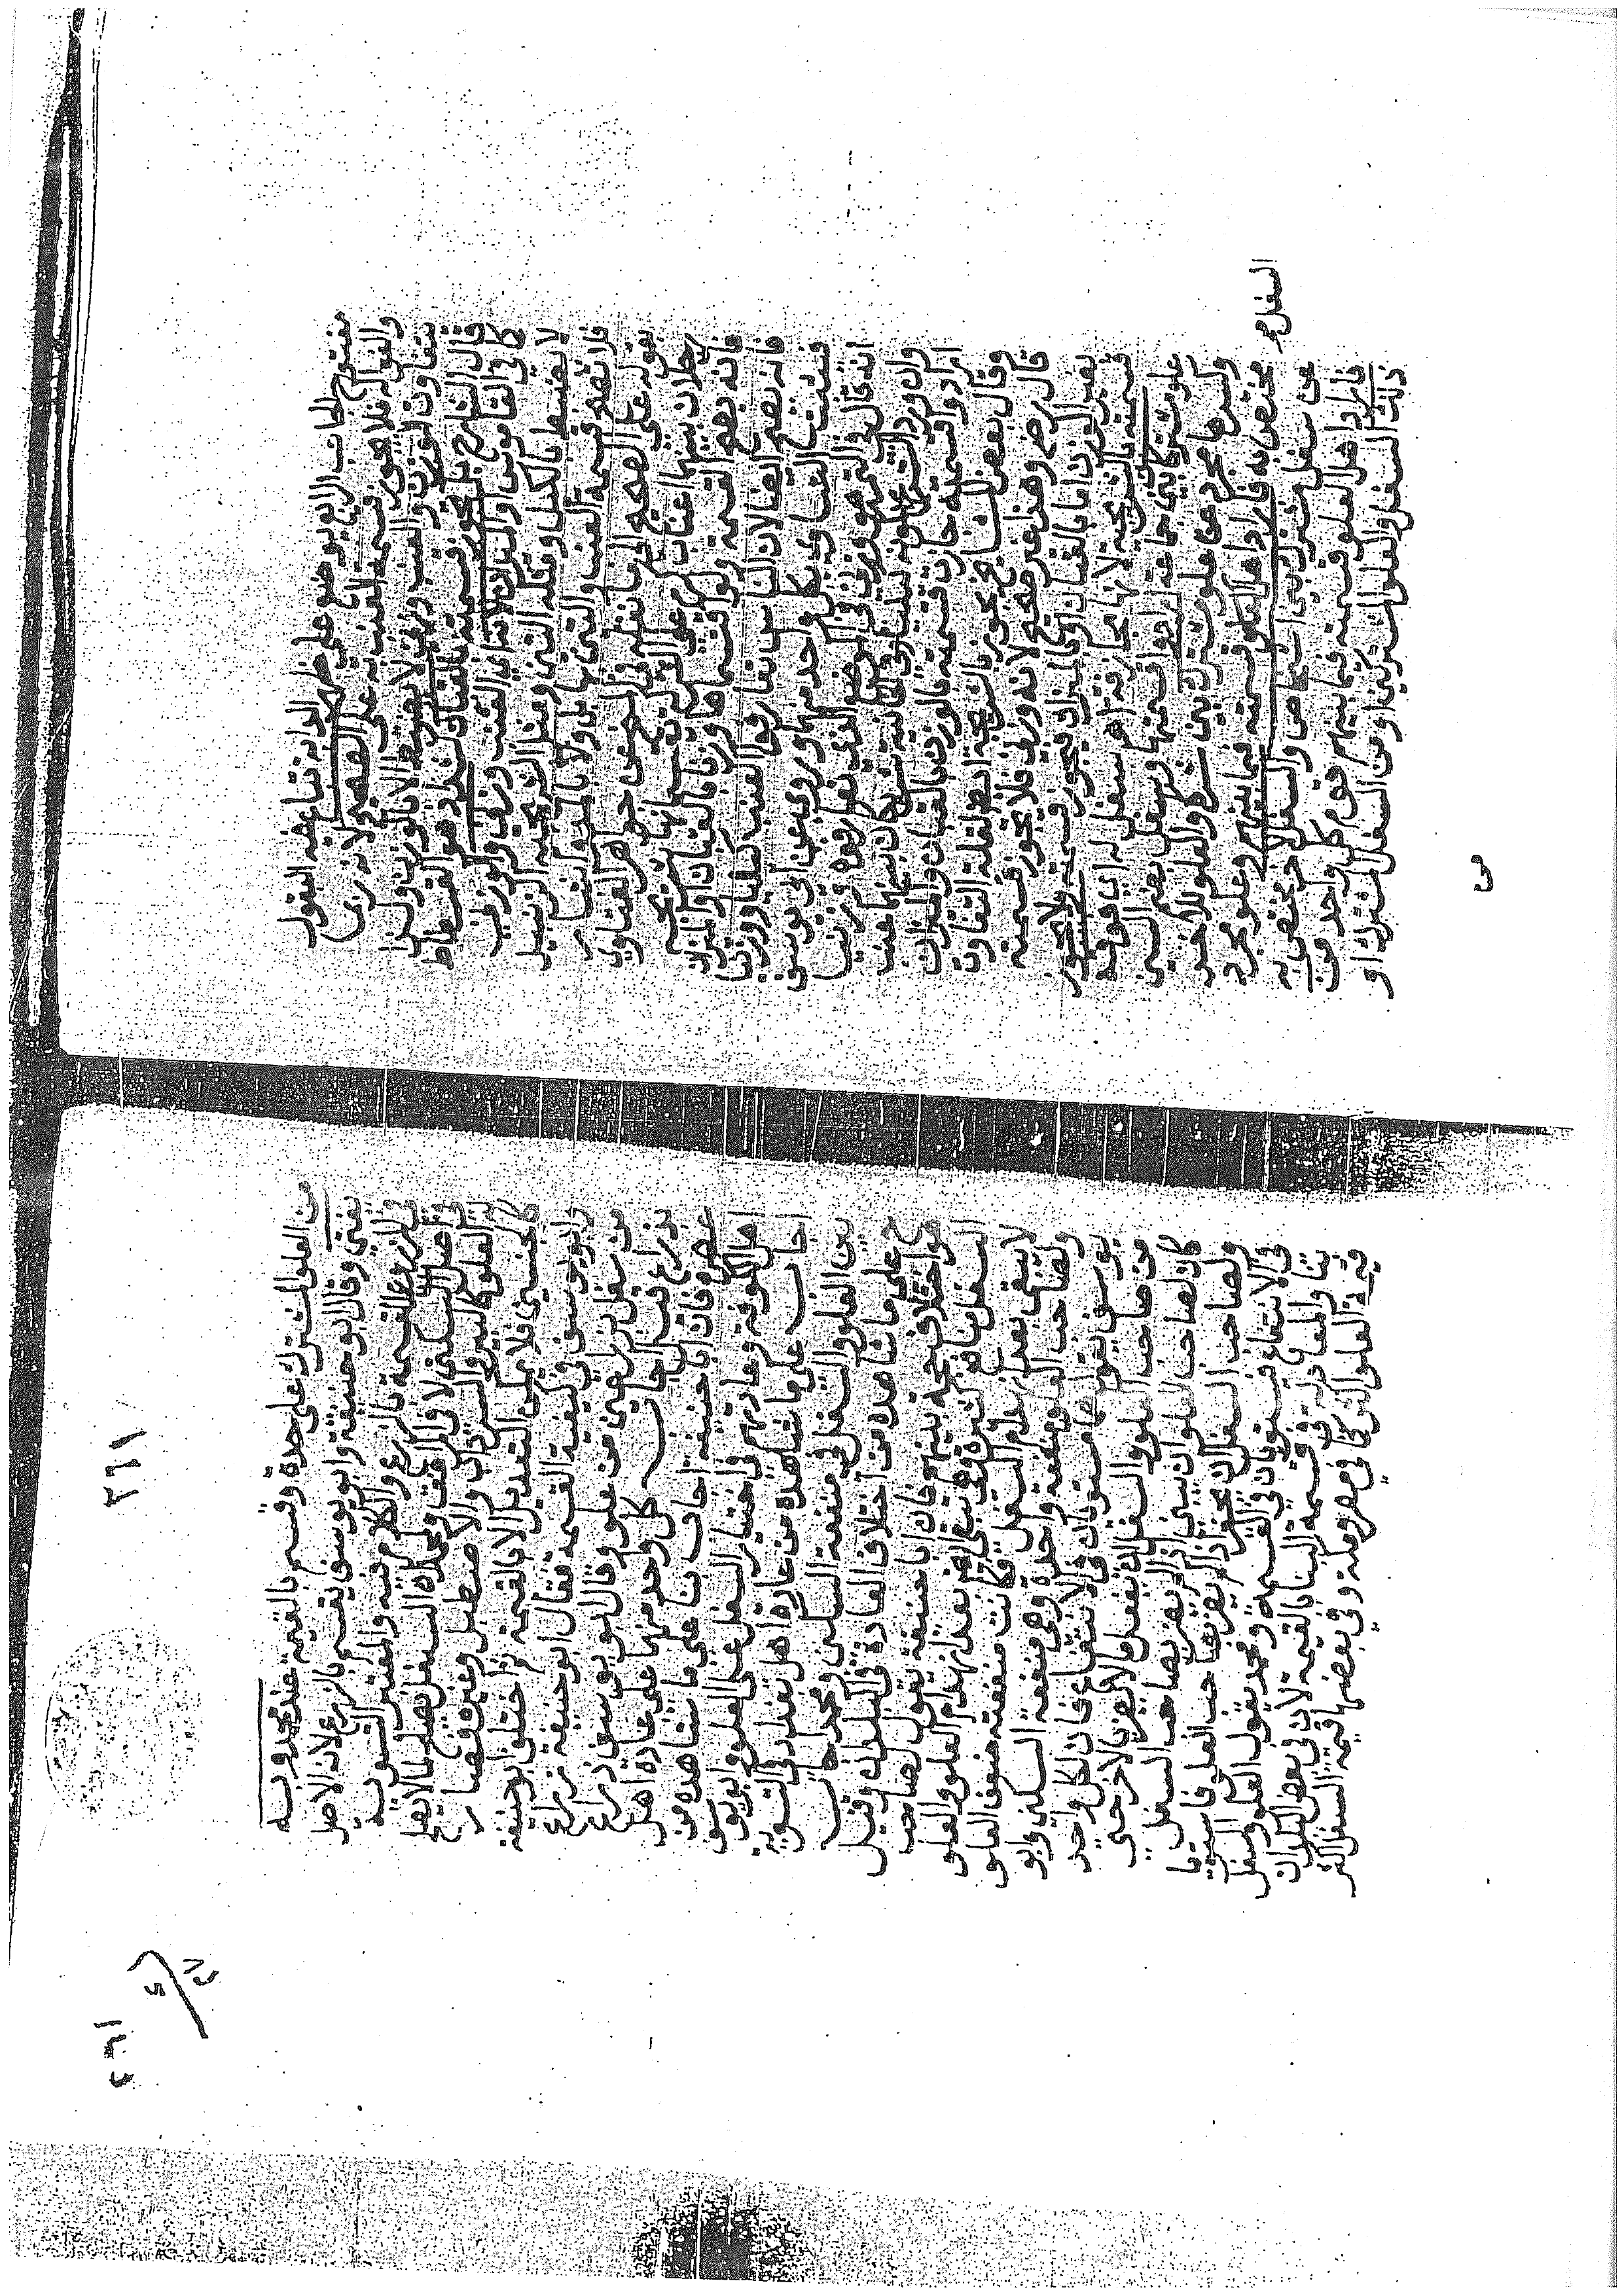 مفتوح الجانب الرابع يوضع على ظهر الدابة تباع فيه البقول
والفواكه فلا يجوز قسمة العنب به على الصحيح لانه ربما
يتفاوت الوزن والعنب وزني لا يضبط الا بالوزن ولهذا
قال الشارح بل يجوز قسمته بالقبان هو القسطاس
كما في القاموس والميزان لانه اي العنب وزني والوزني
لا يضبط بالكيل ومثله التين ومثل الشريجة الزنبيل
فلا تصح قسمة العنب والتين بها بل ولا
بقوله على الصحيح الى ما نقل في عن جواهر الفتاوى
رجلان بينهما عنب كرم على الشركة يقسمانها بشريجة
فانه يصح القسمة ولو اقتسماها وزنا بالقبان او الميزان
فانه يصح ايضا لان الناس تعارفوا العنب كيلا ووزنا
فيثبت التساوي بكل واحد منهما وروي عن ابي يوسف
انه قال في التمر هو وزني في الموضع الذي تعارفوه وزنيا
وان ورد الشرع بكونه كيليا وفي الخانية شريكان بينهما عنب
ارادوا قسمته جازت قسمته بالوزن بالقبان والميزان
وقال بعض المشايخ يجوز بالشريجة ايضا لقلة التفاوت
قال رض وهذا غير صحيح لانه وزني فلا يجوز قسمته
بغير الوزن اما بالقبان او بالميزان فيجوز قسمته ولا يجوز
قسمته بالشريجة لانها مجازفة اهـ سفل له اي فوقه
علو مشترك بين جماعة ارادوا قسمتها وسفل بضم السين
وكسرها مجرد عن علو مشترك بين شركاء والعلو لاخر
مختص به فاراد اهل السفل قسمته فيما بينهم وعلو مجرد
عن سفل مشترك بين اشخاص والسفل لاخر مختص به
فاراد اهل العلو قسمته فيما بينهم قوم كل واحد من
ذلك السفل والعلو المشتركين او من السفل المشترك او
من العلو المشترك على حدة وقسم بالقيمة عند محمد وبه
يفتى وقال ابو حنيفة وابو يوسف يقسم بالذرع لانه الاصل
في المذروع القسمة بالذرع والكلام فيه والمعتبر التسوية
في اصل السكنى لا في المرافق ولمحمد ان السفل يصلح لما لا يصلح
له العلو كالبير والسرداب والاصطبل وغيره فصار
كالجنسين فلا يمكن التعديل الا بالقيمة ثم اختلف ابو حنيفة
وابو يوسف في كيفية القسمة فقال ابو حنيفة ذراع
من سفل بذراعين من علو وقال ابو يوسف ذراع
بذراع قيل اجاب كل واحد منهما على عادة اهل
عصره فان ابا حنيفة اجاب بنا على ما شاهده من
اهل الكوفة وعادتهم في اختيار السفل على العلو وابو يوسف
اجاب على ما شاهده من عادة اهل بغداد في التسوية
بين العلو والسفل في منفعة السكنى ومحمد اجاب
على ما شاهده من اختلاف العادة في البلدان وقيل
هو اختلاف حجة بينهم فان ابا حنيفة يقول لصاحب
السفل منافع كثيرة وهي تبقى ايضا بعد انهدام العلو والعلو
لا يبقى بعد انهدام السفل فكانت منفعته ضعف العلو
ولصاحب العلو منفعة واحدة وهي منفعة السكنى وابو
يوسف يقول هما مستويان في الانتفاع فان لكل واحد
من صاحب العلو والسفل ان يفعل ما لا يضر بالاخر حتى
كان لصاحب العلو ان يبني اذا لم يضر بصاحب السفل
ولصاحب السفل ان يحفر اذا لم يضر بصاحب العلو فاستويا
في الانتفاع فيستويان في القسمة ومحمد يقول العلو والسفل
بناء والمعادلة في قسمة البناء بالقيمة لان في بعض البلدان
قيمة العلو اكثر كما في مصر ومكة وفي بعضها قيمة السفل اكثر
٢٦١